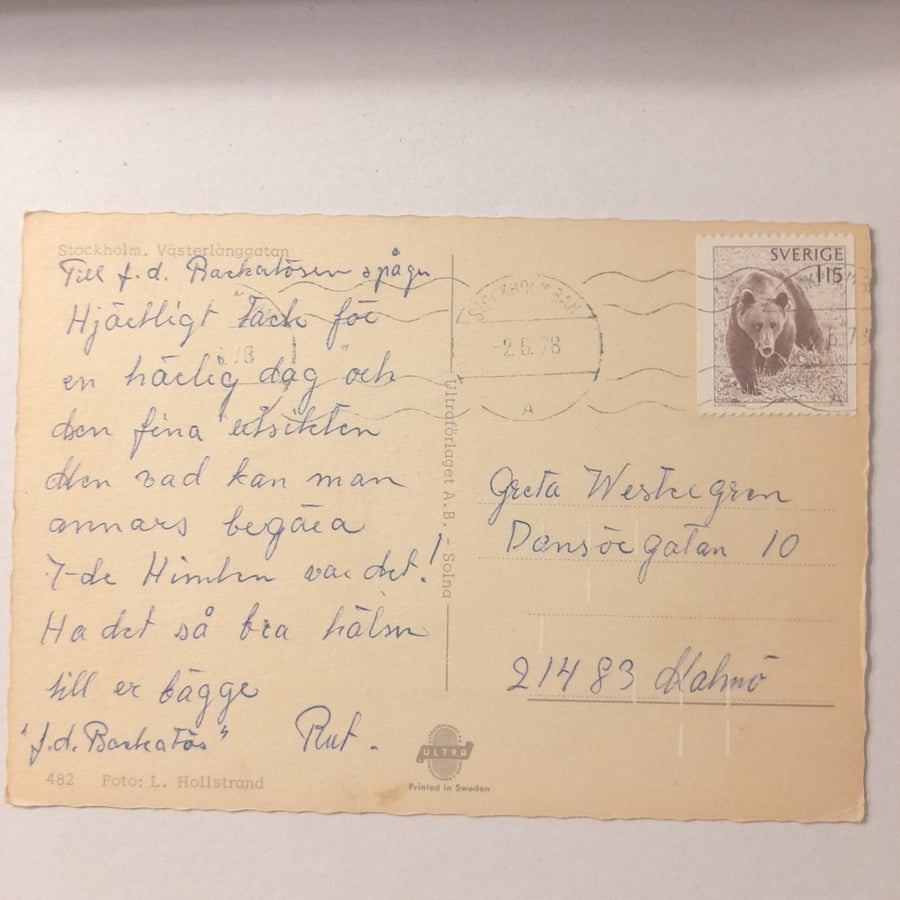 Stockholm. Västerlånggatan
Till f.d. Backatösen spågu
Hjärtligt Tack för
en härlig dag och
den fina utsikten
Men vad kan man
annars begära
7-de Himlen var det!
Ha det så bra hälsn
till er bägge
"f.d. Backatös" Rut.
482 Foto: L. Hollstrand
Ultraförlaget A.B. - Solna
ULTRA
Printed in Sweden
STOCKHOLM BAN
-2.6.78
A
SVERIGE
115
Greta Westergren
Dansörgatan 10
214 83 Malmö